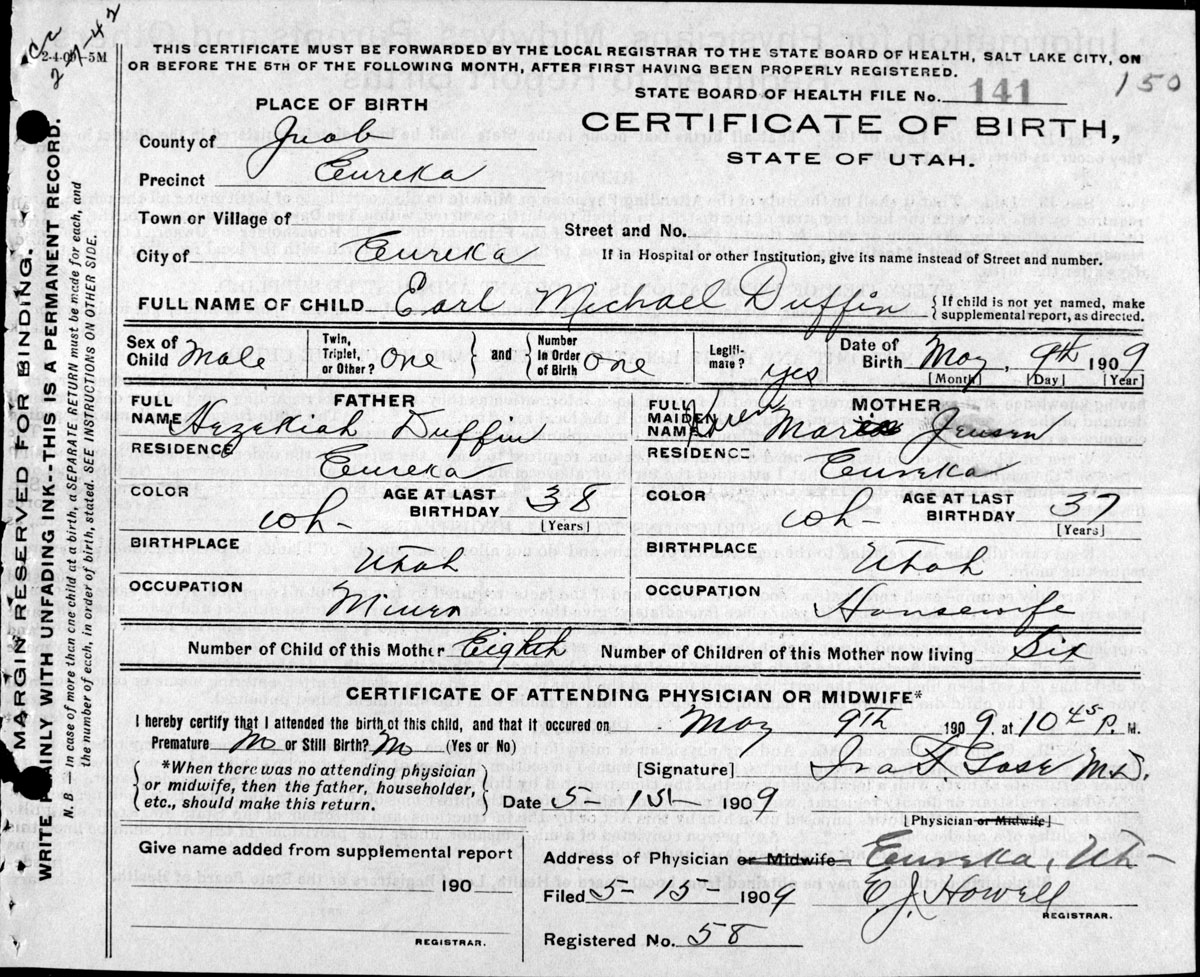 Cc 2-4-42
2-4-09-5M
THIS CERTIFICATE MUST BE FORWARDED BY THE LOCAL REGISTRAR TO THE STATE BOARD OF HEALTH, SALT LAKE CITY, ON
OR BEFORE THE 5TH OF THE FOLLOWING MONTH, AFTER FIRST HAVING BEEN PROPERLY REGISTERED.
150
STATE BOARD OF HEALTH FILE No. 141
PLACE OF BIRTH
CERTIFICATE OF BIRTH,
STATE OF UTAH.
County of Juab
Precinct Eureka
Town or Village of
Street and No.
City of Eureka
If in Hospital or other Institution, give its name instead of Street and number.
FULL NAME OF CHILD Earl Michael Duffin { If child is not yet named, make supplemental report, as directed.
Sex of Child Male Twin, Triplet, or Other? One } and { Number In Order of Birth One Legiti-mate? yes Date of Birth May, 9th 1909
[Month] [Day] [Year]
FATHER
FULL NAME Hezekiah Duffin
RESIDENCE Eureka
COLOR Wh- AGE AT LAST BIRTHDAY 38 [Years]
BIRTHPLACE Utah
OCCUPATION Miner
MOTHER
FULL MAIDEN NAME Maria Jensen
RESIDENCE Eureka
COLOR Wh- AGE AT LAST BIRTHDAY 37 [Years]
BIRTHPLACE Utah
OCCUPATION Housewife
Number of Child of this Mother Eighth Number of Children of this Mother now living Six
CERTIFICATE OF ATTENDING PHYSICIAN OR MIDWIFE*
I hereby certify that I attended the birth of this child, and that it occured on May 9th 1909. at 10 45 P. M.
Premature No or Still Birth? No (Yes or No)
{ *When there was no attending physician or midwife, then the father, householder, etc., should make this return. }
[Signature] M.D.
Date 5-15- 1909
[Physician or Midwife]
Give name added from supplemental report
190
REGISTRAR.
Address of Physician or Midwife Eureka, Ut-
Filed 5-15- 1909 E. J. Howell
REGISTRAR.
Registered No. 58
MARGIN RESERVED FOR BINDING.
WRITE PLAINLY WITH UNFADING INK--THIS IS A PERMANENT RECORD.
N. B.—In case of more than one child at a birth, a SEPARATE RETURN must be made for each, and
the number of each, in order of birth, stated. SEE INSTRUCTIONS ON OTHER SIDE.